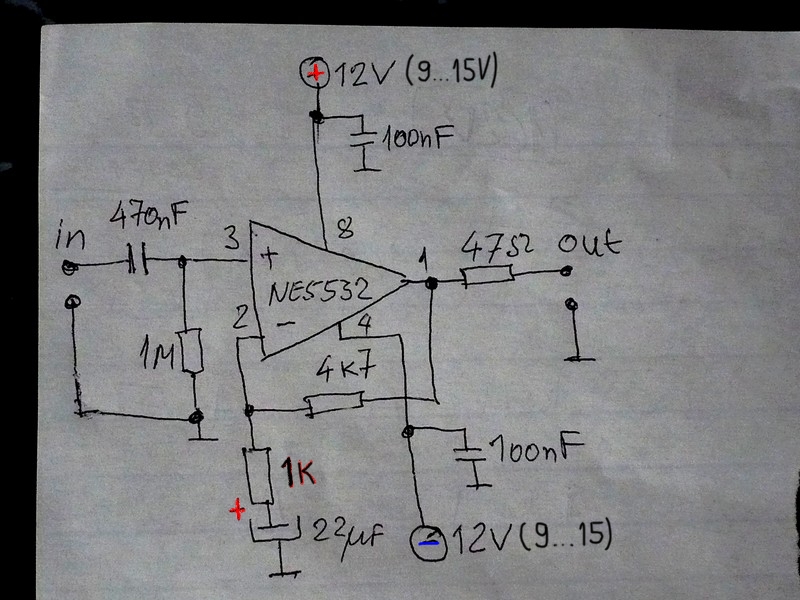 + 12V (9...15V)
100nF
470nF
in
3
8
1
47Ω
out
+
NE5532
2
-
4
1M
4K7
1K
100nF
+
22µF
- 12V (9...15)